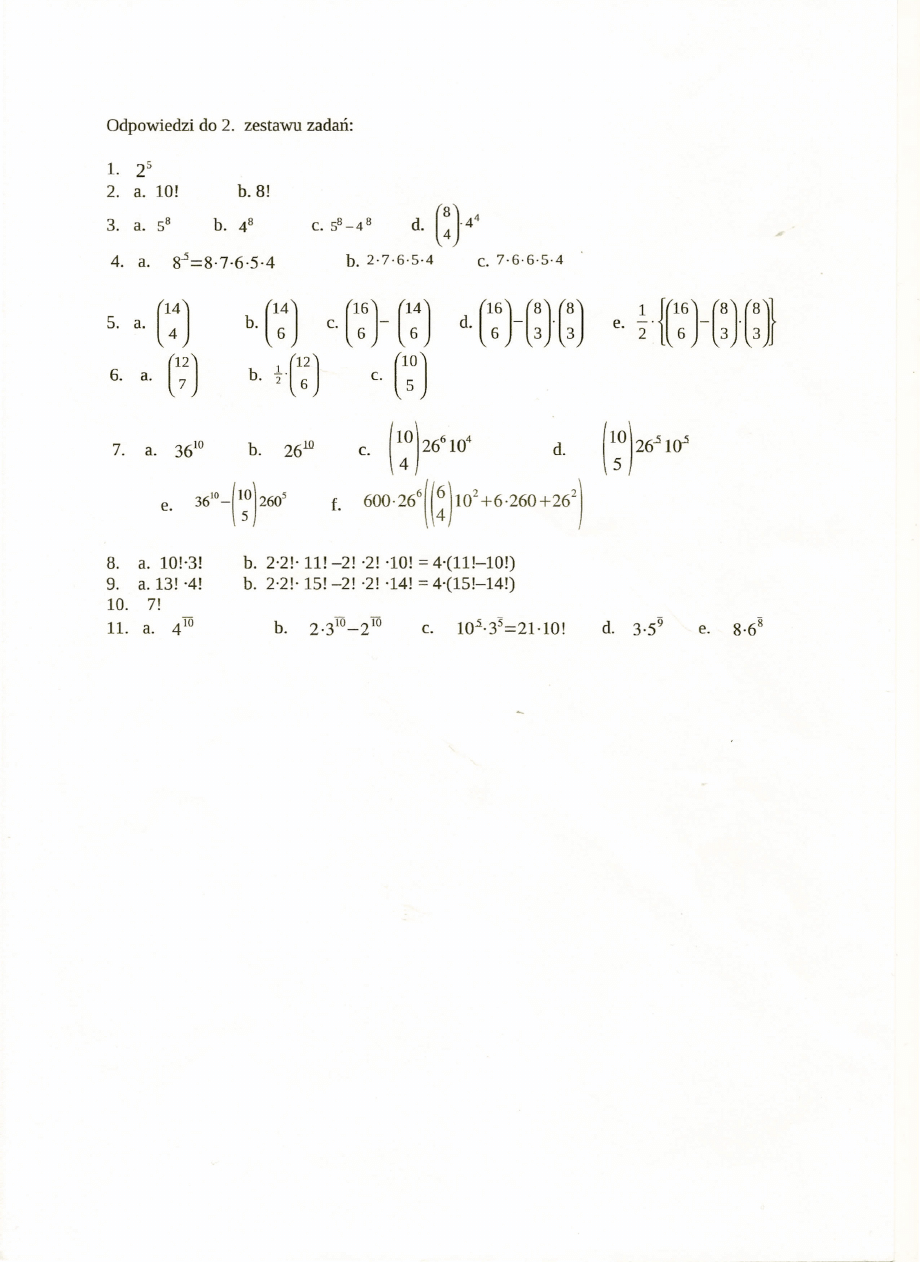 Odpowiedzi do 2. zestawu zadań:
1. 2⁵
2. a. 10! b. 8!
3. a. 5⁸ b. 4⁸ c. 5⁸−4⁸ d. \binom{8}{4}·4⁴
4. a. 8^{\underline{5}}=8·7·6·5·4 b. 2·7·6·5·4 c. 7·6·6·5·4
5. a. \binom{14}{4} b. \binom{14}{6} c. \binom{16}{6}−\binom{14}{6} d. \binom{16}{6}−\binom{8}{3}·\binom{8}{3} e. \frac{1}{2}·{[\binom{16}{6}−\binom{8}{3}·\binom{8}{3}]}
6. a. \binom{12}{7} b. \frac{1}{2}·\binom{12}{6} c. \binom{10}{5}
7. a. 36¹⁰ b. 26^{\underline{10}} c. \binom{10}{4}26⁶10⁴ d. \binom{10}{5}26^{\underline{5}}10^{\underline{5}}
e. 36¹⁰−\binom{10}{5}260⁵ f. 600·26⁶(\binom{6}{4}10²+6·260+26²)
8. a. 10!·3! b. 2·2!· 11! –2! ·2! ·10! = 4·(11!–10!)
9. a. 13! ·4! b. 2·2!· 15! –2! ·2! ·14! = 4·(15!–14!)
10. 7!
11. a. 4^{\overline{10}} b. 2·3^{\overline{10}}−2^{\overline{10}} c. 10^{\underline{5}}·3^{\overline{5}}=21·10! d. 3·5^{\overline{9}} e. 8·6^{\overline{8}}